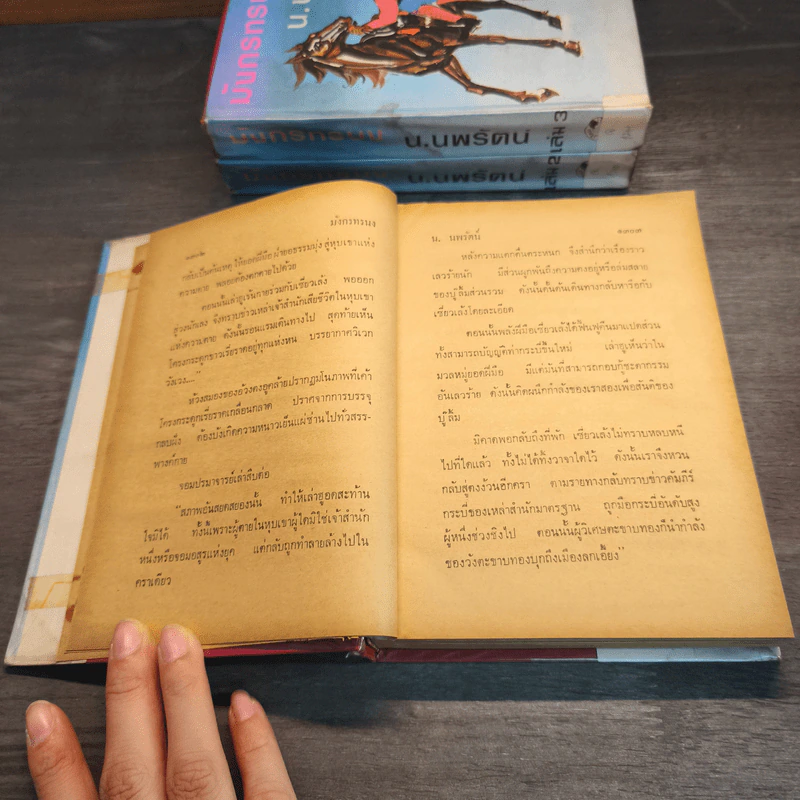 มังกรทรนง
น.นพรัตน์ เล่ม 3
น.นพรัตน์ เล่ม 2
มังกรทรนง
ครามตาย พลอยต้องตกตายไปด้วย
ตอนนั้นเล่าฮูเร้นกายร่วมกับเซียวเล้ง พอออก
แห่งความตาย ดังนั้นรอนแรมเดินทางไป สุดท้ายเห็น
โครงกระดูกขาวเรี่ยราดอยู่ทุกแห่งหน บรรยากาศวิเวก
วังเวง..."
ห้วงสมองของอ้วงตงฮุกคล้ายปรากฏมโนภาพที่เต็ม
โครงกระดูกเรี่ยราดเกลื่อนกลาด ปราศจากการบรรจุ
กลบฝัง ต้องบังเกิดความหนาวเย็นแผ่ซ่านไปทั่วสรร-
พางค์กาย
จอมปรมาจารย์เล่าสืบต่อ
"สภาพอันสยดสยองนั้น ทำให้เล่าฮูอดสะท้าน
ใจมิได้ ทั้งนี้เพราะผู้ตายในหุบเขาผู้ใดมิใช่เจ้าสำนัก
หนึ่งหรือจอมอสูรแห่งยุค แต่กลับถูกทำลายล้างไปใน
คราเดียว
น. นพรัตน์
๑๓๐๓
หลังความแตกตื่นตระหนก จึงสำนึกว่าเรื่องราว
เลวร้ายนัก มีส่วนผูกพันถึงความคงอยู่หรือล่มสลาย
ของบู๊ลิ้มส่วนรวม ดังนั้นดั้นด้นเดินทางกลับหารือกับ
เซียวเล้งโดยละเอียด
ตอนนั้นพลังฝีมือเซียวเล้งได้ฟื้นฟูคืนมาแปดส่วน
ทั้งสามารถบัญญัติท่ากระบี่ขึ้นใหม่ เล่าฮูเห็นว่าใน
มวลหมู่ยอดฝีมือ มีแต่มันที่สามารถกอบกู้ชะตากรรม
อันเลวร้าย ดังนั้นคิดผนึกกำลังของเราสองเพื่อสันติของ
บู๊ลิ้ม
มิคาดพอกลับถึงที่พัก เซียวเล้งไม่ทราบหลบหนี
ไปที่ใดแล้ว ทั้งไม่ได้ทิ้งวาจาใดไว้ ดังนั้นเราจึงหวน
กลับสู่ตงง้วนอีกครา ตามรายทางกลับทราบข่าวคัมภีร์
กระบี่ของเหล่าสำนักมาตรฐาน ถูกมือกระบี่อันดับสูง
ผู้หนึ่งช่วงชิงไป ตอนนั้นผู้วิเศษตะขาบทองก็นำกำลัง
ของวังตะขาบทองบุกถึงเมืองลกเอี้ยง"